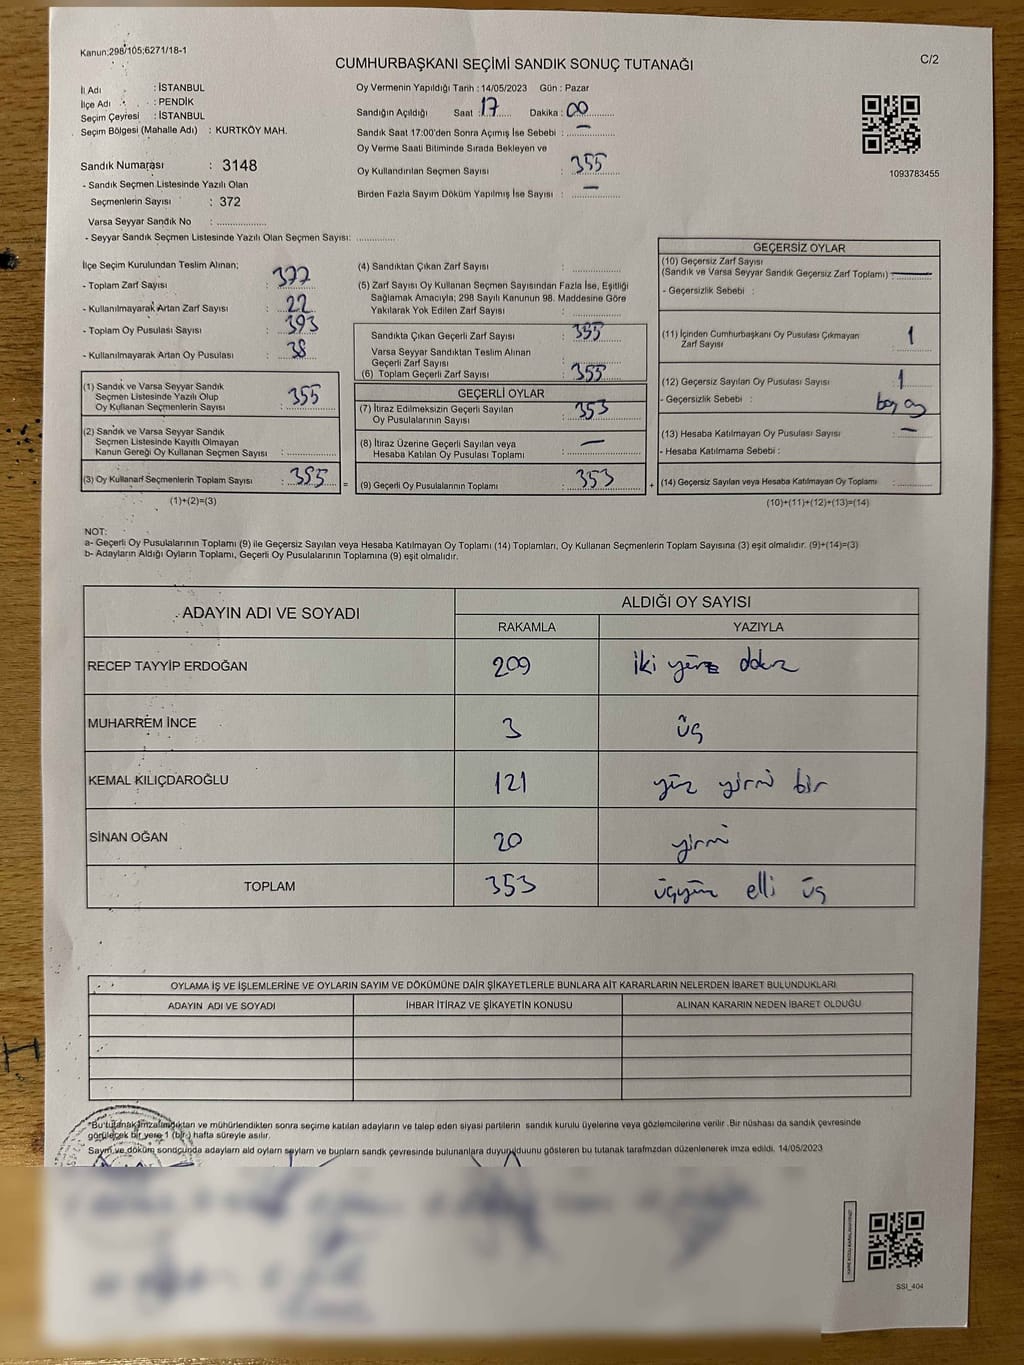 Kanun:298/105;6271/18-1
C/2
CUMHURBAŞKANI SEÇİMİ SANDIK SONUÇ TUTANAĞI
İl Adı : İSTANBUL
İlçe Adı : PENDİK
Seçim Çevresi : İSTANBUL
Seçim Bölgesi (Mahalle Adı) : KURTKÖY MAH.
Sandık Numarası : 3148
- Sandık Seçmen Listesinde Yazılı Olan
Seçmenlerin Sayısı : 372
Varsa Seyyar Sandık No :
- Seyyar Sandık Seçmen Listesinde Yazılı Olan Seçmen Sayısı:
Oy Vermenin Yapıldığı Tarih : 14/05/2023 Gün : Pazar
Sandığın Açıldığı Saat : 17 Dakika : 00
Sandık Saat 17:00'den Sonra Açımış İse Sebebi : —
Oy Verme Saati Bitiminde Sırada Bekleyen ve
Oy Kullandırılan Seçmen Sayısı : 355
Birden Fazla Sayım Döküm Yapılmış İse Sayısı : —
1093783455
İlçe Seçim Kurulundan Teslim Alınan;
- Toplam Zarf Sayısı : 377
- Kullanılmayarak Artan Zarf Sayısı : 22
- Toplam Oy Pusulası Sayısı : 393
- Kullanılmayarak Artan Oy Pusulası : 38
(1) Sandık ve Varsa Seyyar Sandık
Seçmen Listesinde Yazılı Olup
Oy Kullanan Seçmenlerin Sayısı : 355
(2) Sandık ve Varsa Seyyar Sandık
Seçmen Listesinde Kayıtlı Olmayan
Kanun Gereği Oy Kullanan Seçmen Sayısı :
(3) Oy Kullanan Seçmenlerin Toplam Sayısı : 355
(1)+(2)=(3)
(4) Sandıktan Çıkan Zarf Sayısı :
(5) Zarf Sayısı Oy Kullanan Seçmen Sayısından Fazla İse, Eşitliği
Sağlamak Amacıyla; 298 Sayılı Kanunun 98. Maddesine Göre
Yakılarak Yok Edilen Zarf Sayısı :
Sandıkta Çıkan Geçerli Zarf Sayısı : 355
Varsa Seyyar Sandıktan Teslim Alınan
Geçerli Zarf Sayısı :
(6) Toplam Geçerli Zarf Sayısı : 355
GEÇERLİ OYLAR
(7) İtiraz Edilmeksizin Geçerli Sayılan
Oy Pusulalarının Sayısı : 353
(8) İtiraz Üzerine Geçerli Sayılan veya
Hesaba Katılan Oy Pusulası Toplamı : —
(9) Geçerli Oy Pusulalarının Toplamı : 353
GEÇERSİZ OYLAR
(10) Geçersiz Zarf Sayısı
(Sandık ve Varsa Seyyar Sandık Geçersiz Zarf Toplamı) : —
- Geçersizlik Sebebi :
(11) İçinden Cumhurbaşkanı Oy Pusulası Çıkmayan
Zarf Sayısı : 1
(12) Geçersiz Sayılan Oy Pusulası Sayısı : 1
- Geçersizlik Sebebi : boş oy
(13) Hesaba Katılmayan Oy Pusulası Sayısı : —
- Hesaba Katılmama Sebebi :
(14) Geçersiz Sayılan veya Hesaba Katılmayan Oy Toplamı :
(10)+(11)+(12)+(13)=(14)
NOT:
a- Geçerli Oy Pusulalarının Toplamı (9) ile Geçersiz Sayılan veya Hesaba Katılmayan Oy Toplamı (14) Toplamları, Oy Kullanan Seçmenlerin Toplam Sayısına (3) eşit olmalıdır. (9)+(14)=(3)
b- Adayların Aldığı Oyların Toplamı, Geçerli Oy Pusulalarının Toplamına (9) eşit olmalıdır.
ADAYIN ADI VE SOYADI ALDIĞI OY SAYISI
RAKAMLA YAZIYLA
RECEP TAYYİP ERDOĞAN 209 iki yüz dokuz
MUHARREM İNCE 3 üç
KEMAL KILIÇDAROĞLU 121 yüz yirmi bir
SİNAN OĞAN 20 yirmi
TOPLAM 353 üçyüz elli üç
OYLAMA İŞ VE İŞLEMLERİNE VE OYLARIN SAYIM VE DÖKÜMÜNE DAİR ŞİKAYETLERLE BUNLARA AİT KARARLARIN NELERDEN İBARET BULUNDUKLARI
ADAYIN ADI VE SOYADI İHBAR İTİRAZ VE ŞİKAYETİN KONUSU ALINAN KARARIN NEDEN İBARET OLDUĞU
*Bu tutanak imzalandıktan ve mühürlendikten sonra seçime katılan adayların ve talep eden siyasi partilerin sandık kurulu üyelerine veya gözlemcilerine verilir. Bir nüshası da sandık çevresinde
görülecek bir yere 1 (bir) hafta süreyle asılır.
Sayım ve döküm sonucunda adayların ald oyların sayların ve bunların sandk çevresinde bulunanlara duyurulduunu gösteren bu tutanak tarafmzdan düzenlenerek imza edildi. 14/05/2023
SSI_404